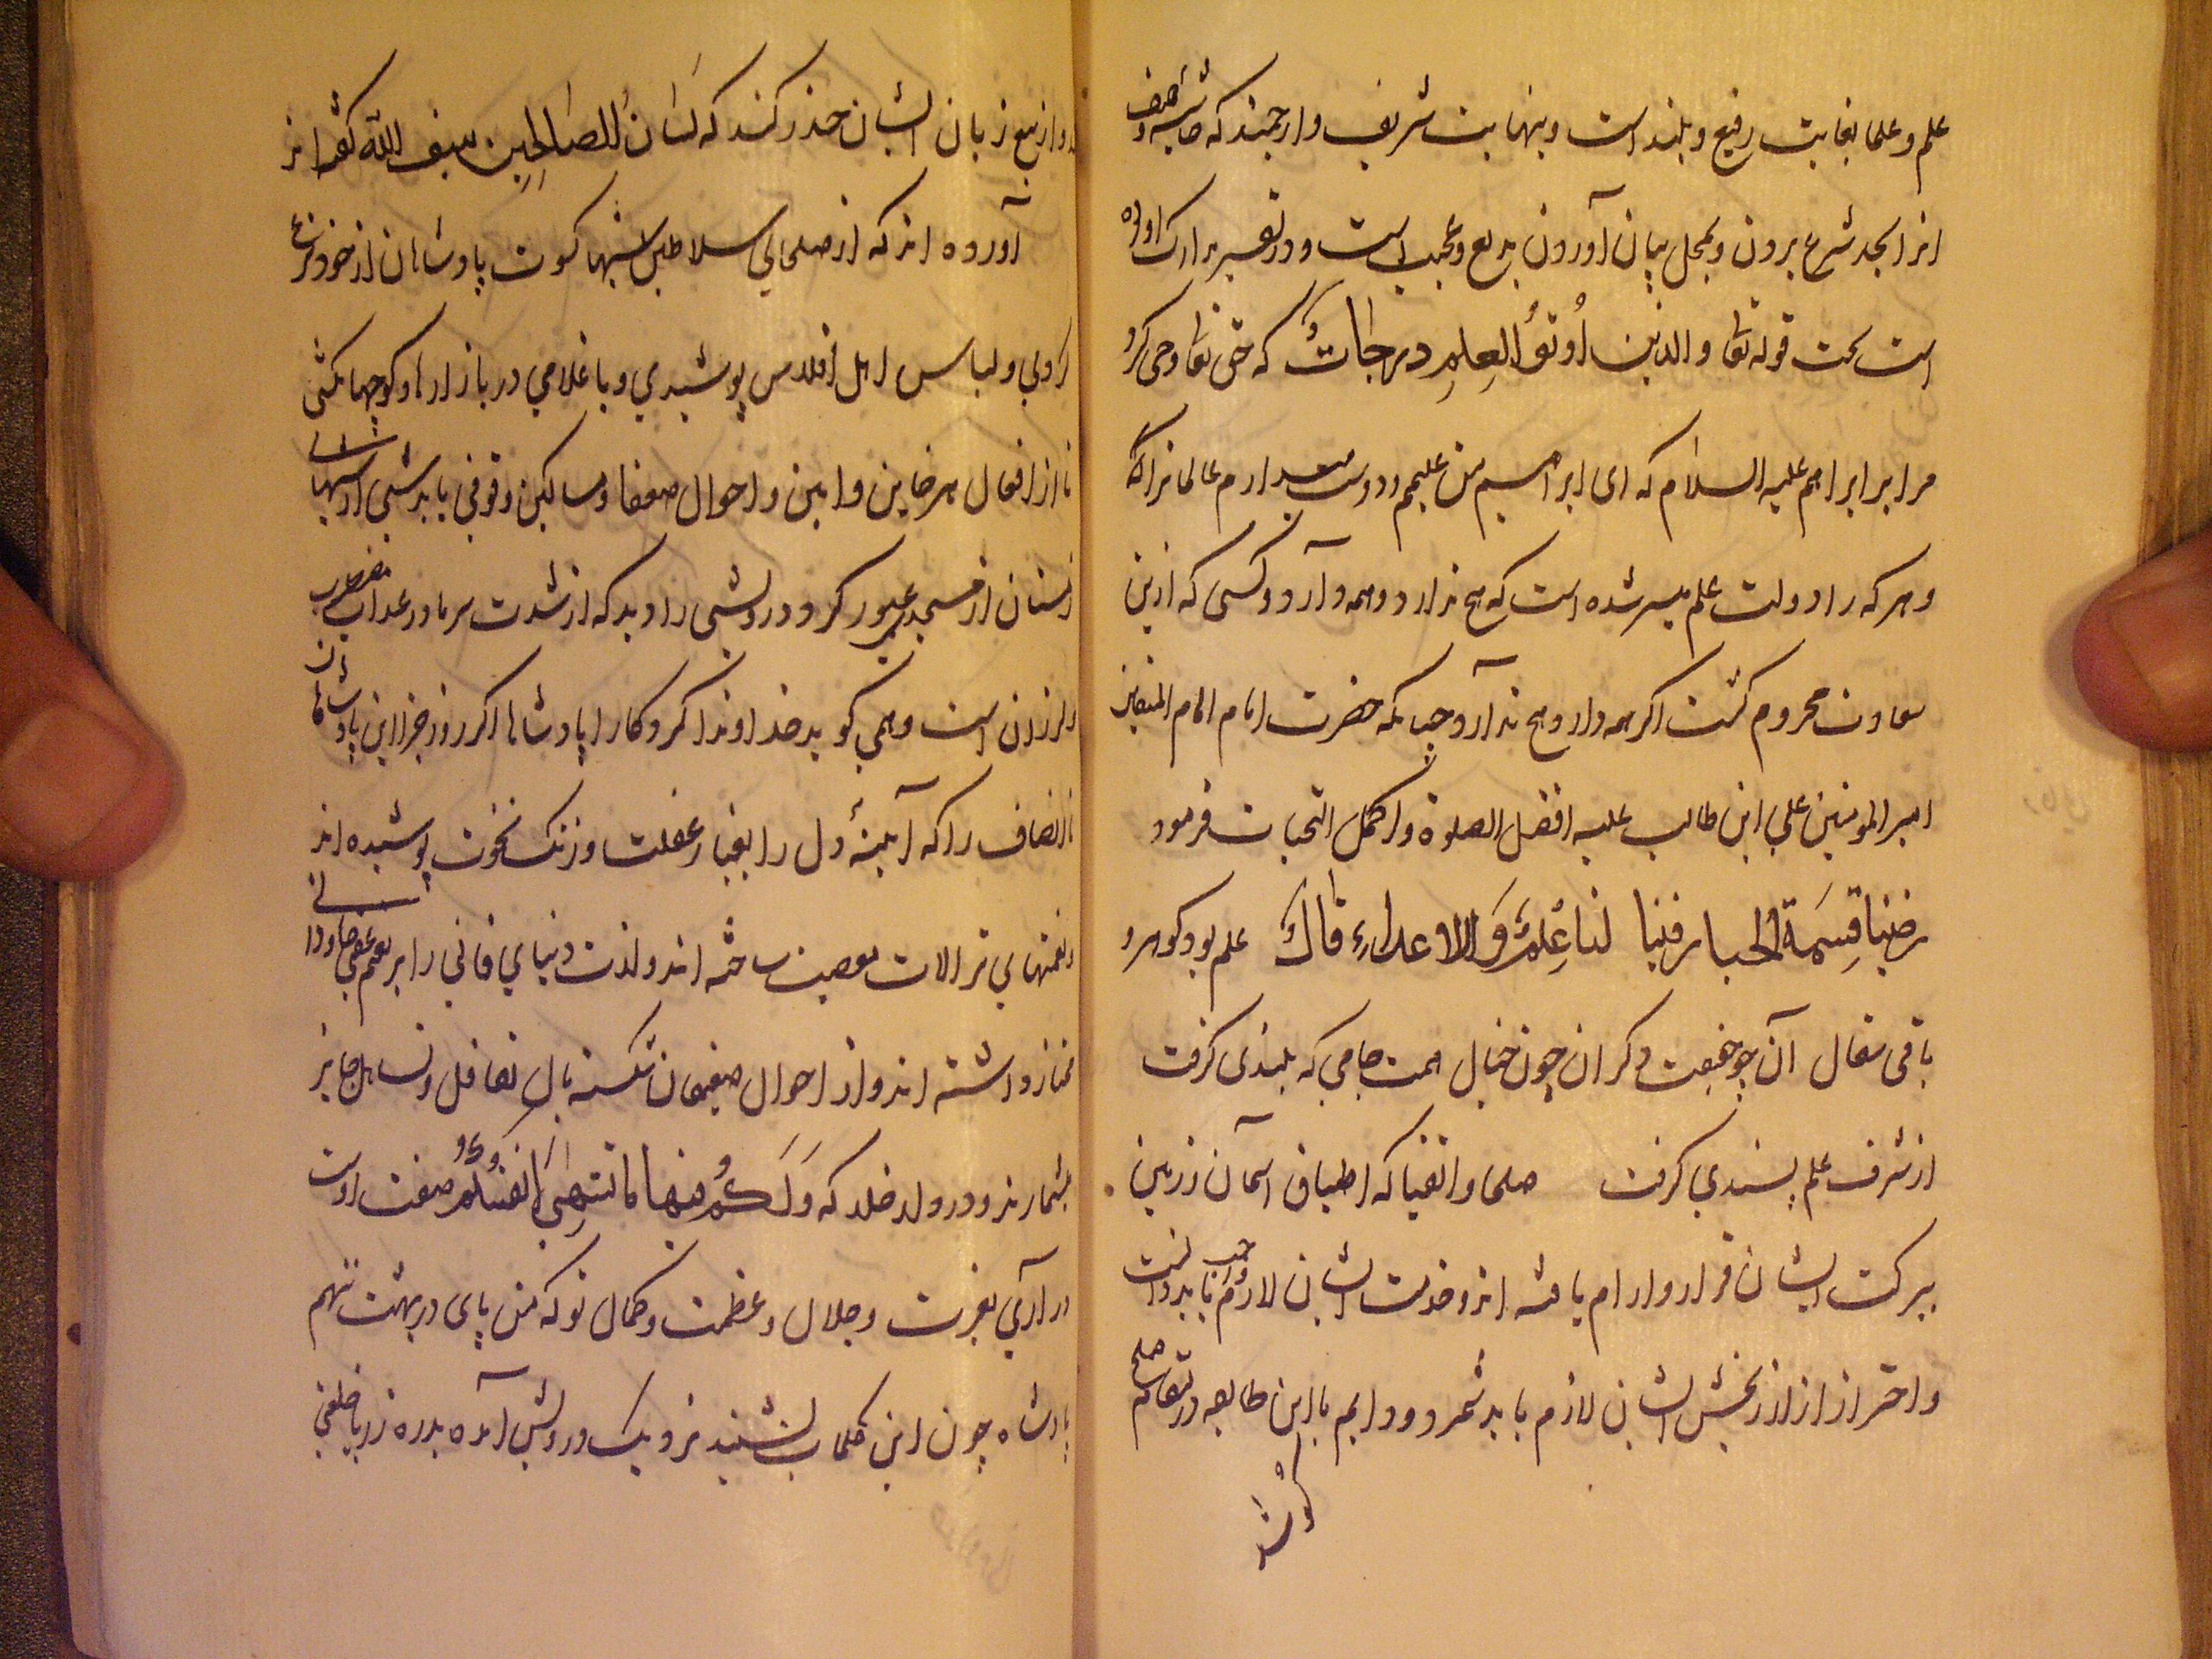 علم و علما بغایت رفیع و بلند است و بنهایت شریف و ارجمند که خاصه و شرف
انرا بحد شرع برون و بمحل بیان آوردن بدیع و عجیب است و در تفسیر مدارک اورده
است تحت قوله تعا والذین اُوتُو العِلمِ درجاتٌ که حق تعا وحی کرد
مر ابر ابراهم علیه السلام که ای ابراهیم من علیمم و دوست میدارم عالمانرا
و هر که را دولت علم میسر شده است که هیچ ندارد و همه دارد و کسی که ازین
سعادت محروم کشت اکر همه دارد هیچ ندارد چنانکه حضرت امام المام المتقین
امیر المومنین علی ابن طالب علیه افضل الصلوة و اکمل التحیات فرمود
رضینا قِسمَةَ الجبار فینا لنا عِلمٌ وَ للاعداءِ مَالٌ علم بود کوهر و
باقی سفال آن چو حقیقت دکران چون خیال همت جامی که بلندی کرفت
از شرف علم پسندی کرفت صلحا و اتقیا که اطباق اسمان و زمین
ببرکت ایشان قرار و ارام یافته اند و خدمت ایشان لازم و واجب باید دانست
و احتراز از رنجش ایشان لازم باید شمرد و دایم با این طایفه در مقام صلح
کوشند
و از تیغ زبان ایشان حذر کنند که لسَان للصَالحِین سیف اللّه کفته اند
آورده اند که از صلحای سلاطین شبها کسوت پادشاهان از خود نزع
کردی و لباس اهل افلاس پوشیدی و با غلامی در بازارها و کوچها کشتی
تا از افعال هر خاین و امین و احوال ضعفا و مساکین وقوفی یابد شبی از شبهای
زمستان از مسجد عبور کرد و درویشی را دید که از شدت سرما در عذاب مضطرب
و لرزان است و همی کوید خداوندا کردکارا پادشاها اکر روز جزا این پادشاهان
ناانصاف را که آیینهٔ دل را بغبار غفلت و زنک نخوت پوشیده اند
و نعمتهای ترا الات معصیت ساخته اند و لذت دنیای فانی را بر نعیم عقبی جاودانی
ممتاز داشته اند و از احوال ضعیفان شکسته بال تغافل و تساهل جایز
بشمارند و در دار خلد که وَلَکُم فیها ما تشتَهِی اَنفُسُکُم صفت اوست
در آری بعزت و جلال و عظمت و کمال تو که من پای در بهشت ننهم
پادشاه چون این کلمات بشنید نزدیک درویش آمده بدره زر با خلعتی